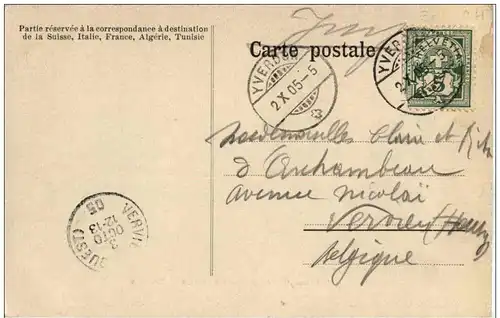 Partie réservée à la correspondance à destination
de la Suisse, Italie, France, Algérie, Tunisie
Carte postale
YVERDON
2.X.05-5
YVERDON
2.X
HELVETIA
5
Mesdemoiselles Claire et
d'Archambeau
avenue Nicolaï
Verviers
Belgique
VERVI
OCTO
12-13
05
(OUEST)